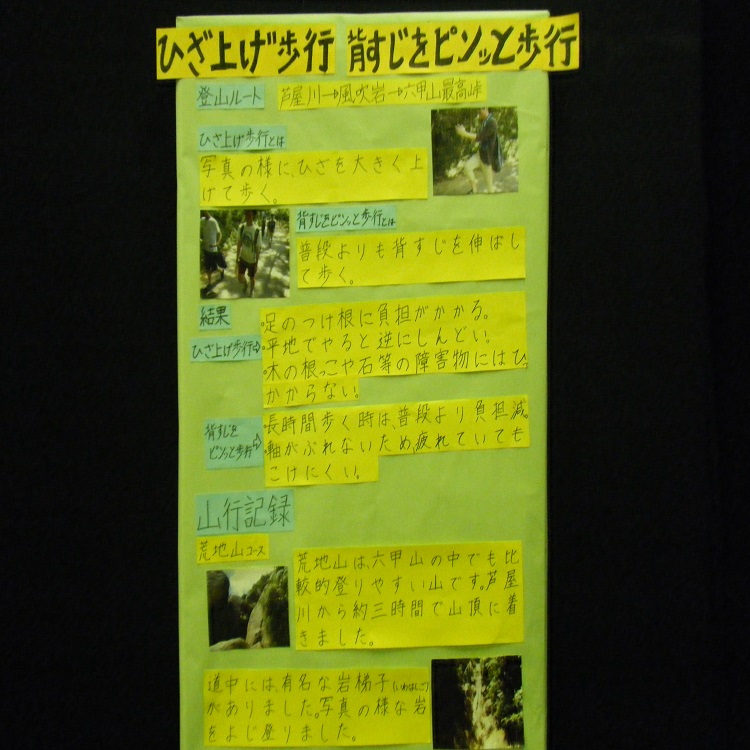 ひざ上げ歩行 背すじをピンッと歩行
登山ルート 芦屋川→風吹岩→六甲山最高峰
ひざ上げ歩行とは
写真の様に、ひざを大きく上
げて歩く。
背すじをピンッと歩行とは
普段よりも背すじを伸ばし
て歩く。
結果
ひざ上げ歩行⇨
・足のつけ根に負担がかかる。
・平地でやると逆にしんどい。
・木の根っこや石等の障害物にはひっ
かからない。
背すじを
ピンッと歩行⇨
・長時間歩く時は、普段より負担減。
・軸がぶれないため、疲れていても
こけにくい。
山行記録
荒地山コース
荒地山は、六甲山の中でも比
較的登りやすい山です。芦屋
川から約三時間で山頂に着
きました。
道中には、有名な岩梯子(いわはしご)
がありました。写真の様な岩
をよじ登りました。